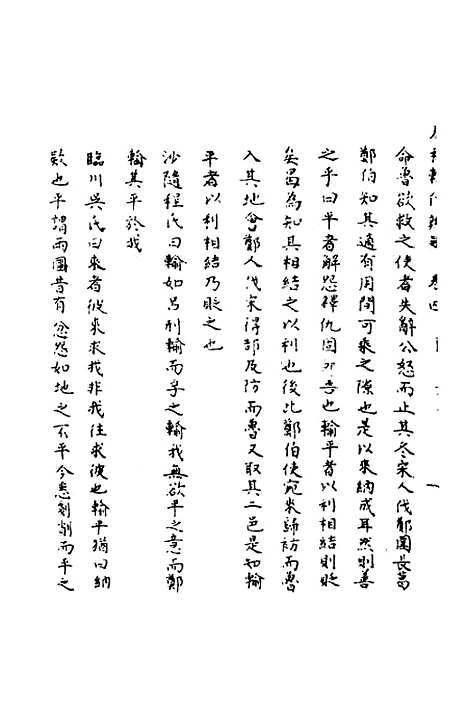 春秋輯傳辨疑 卷四
命魯欲救之使者失辭公怒而止其冬宋人伐鄭圍長葛
鄭伯知其適有用間可乘之隙也是以來納成耳然則善
之乎曰平者解怨釋仇固所善也輸平者以利相結則貶
矣曷為知其相結之以利也後此鄭伯使宛來歸祊而魯
入其地會鄭人伐宋得郜及防而魯又取其二邑是知輸
平者以利相結乃貶之也
沙隨程氏曰輸如呂刑輸而孚之輸我無欲平之意而鄭
輸其平於我
臨川吳氏曰來者彼來求我非我往求彼也輸平猶曰納
欵也平謂兩國昔有忿怨如地之不平今悉剗削而平之